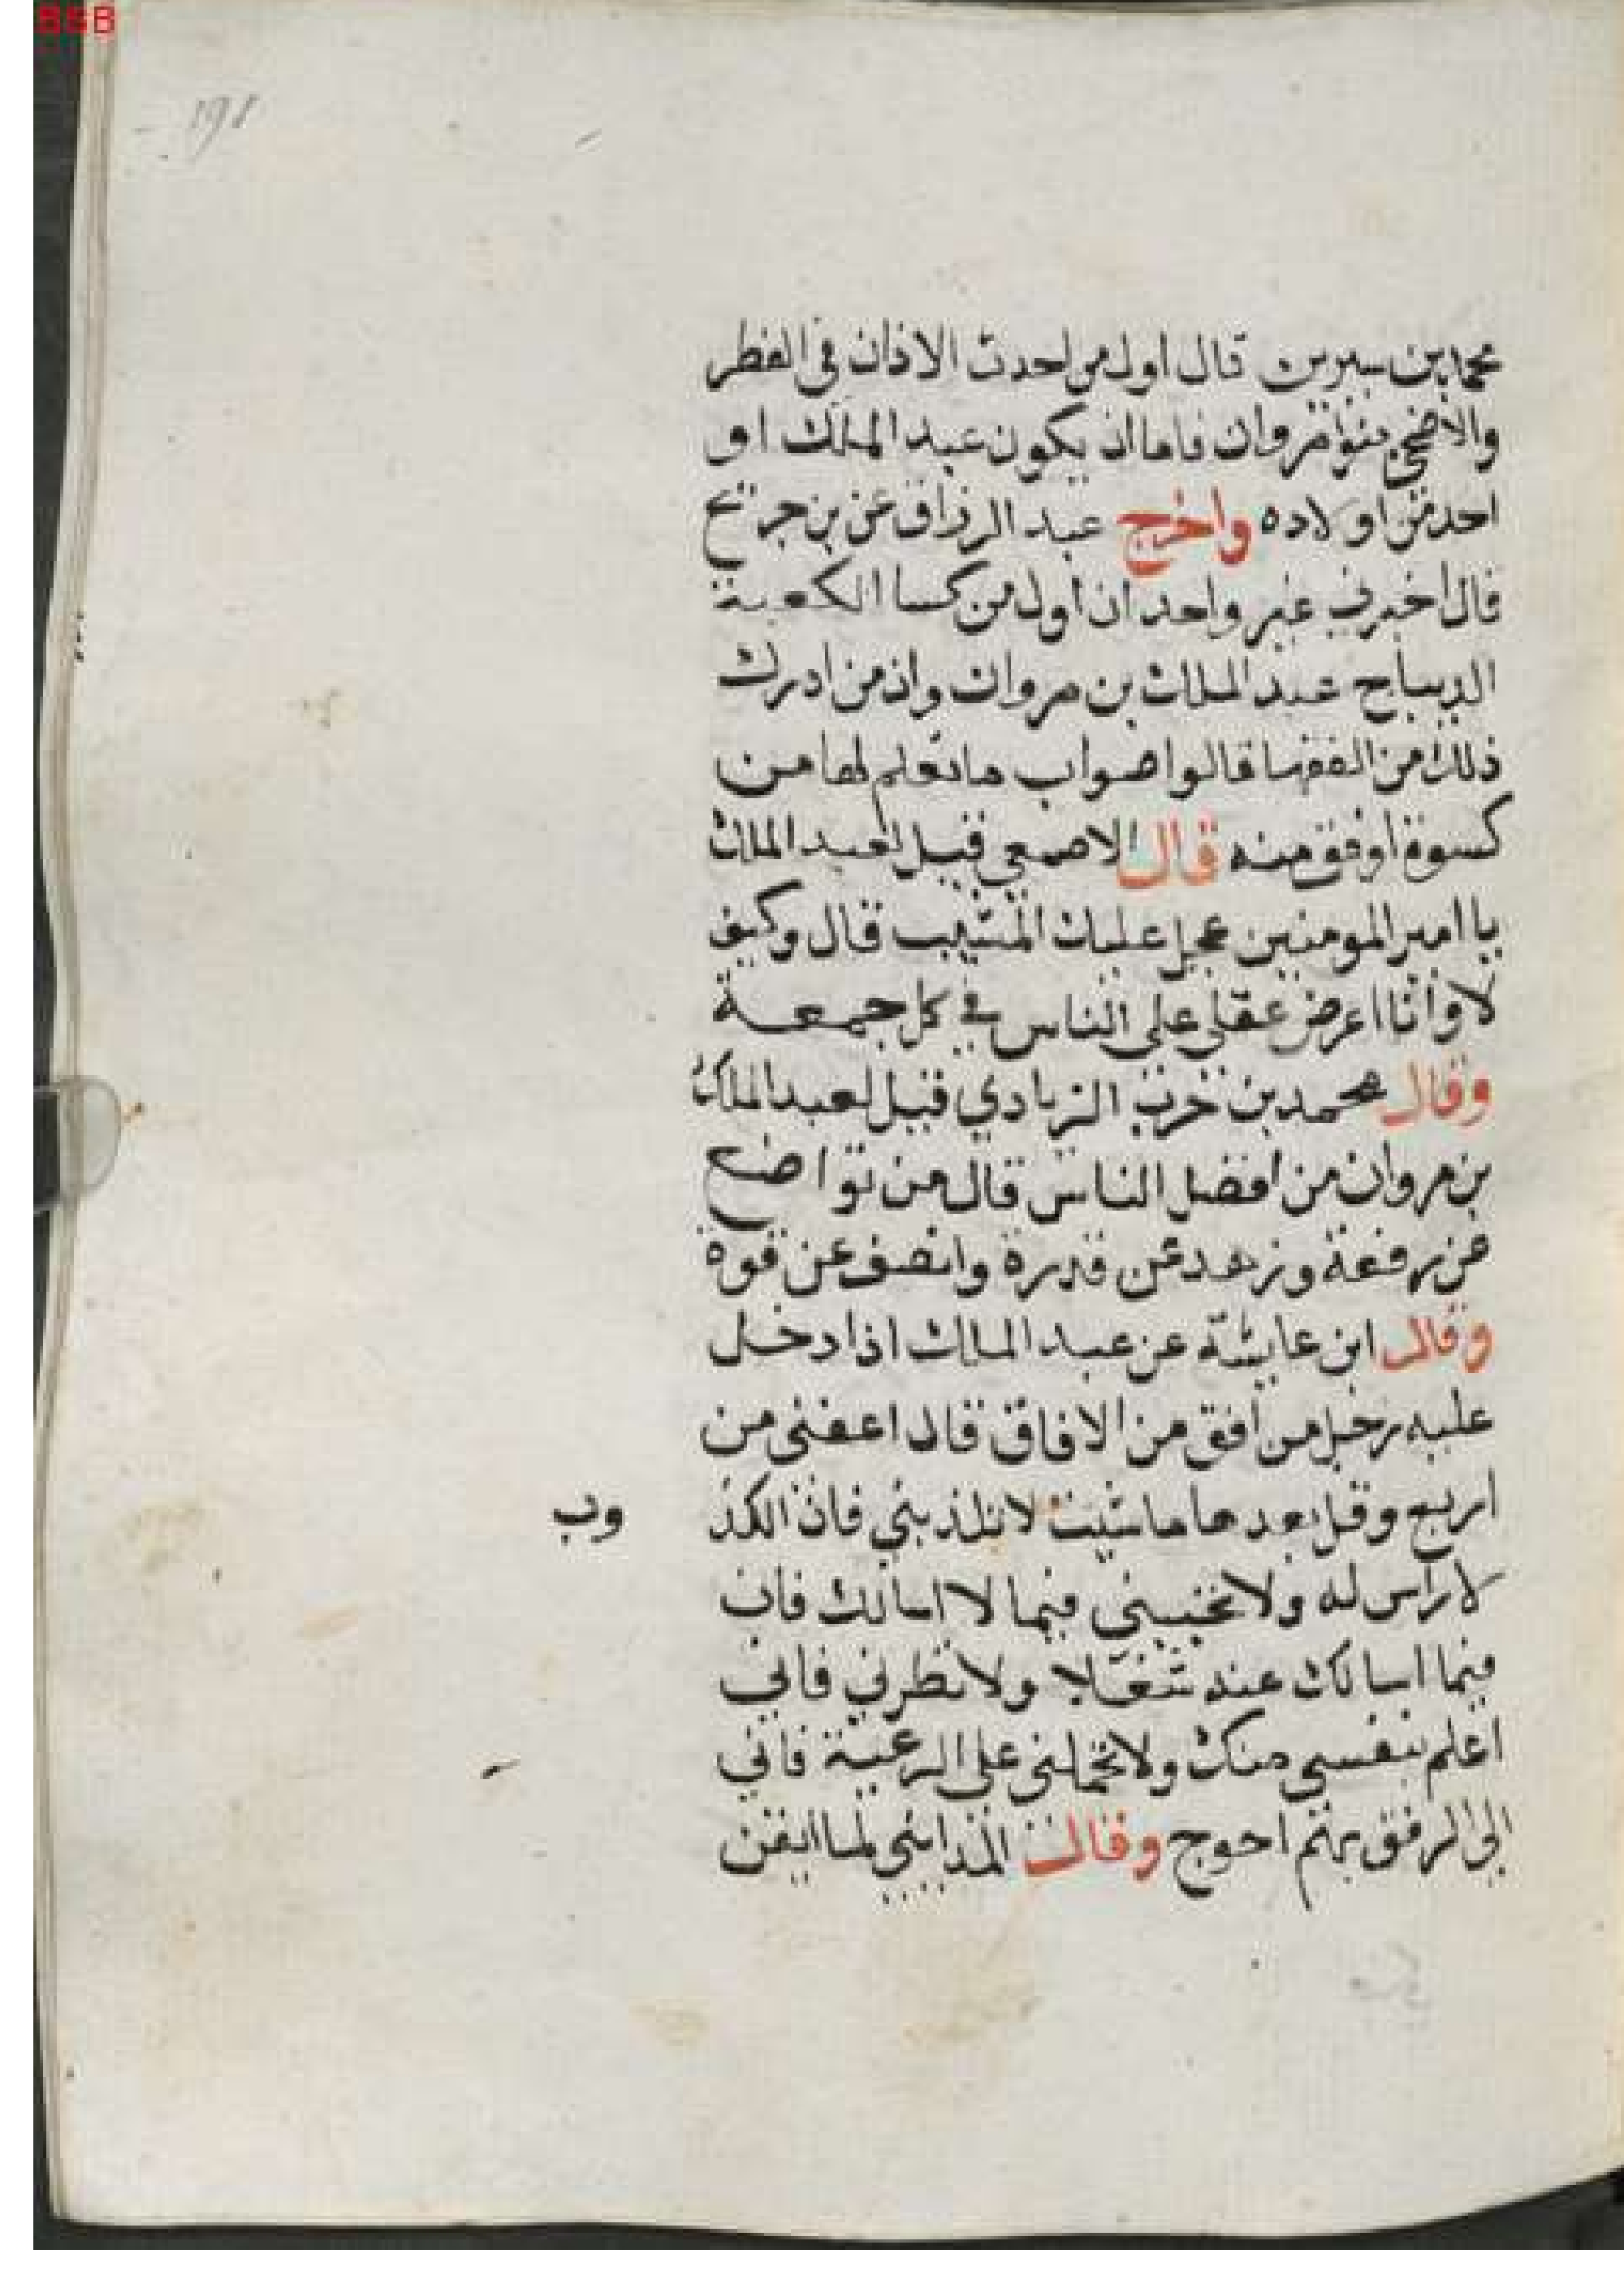 BSB
191
محمد بن سيرين قال اول من احدث الاذان في الفطر
والاضحى بنوا مروان فاما ان يكون عبد الملك او
احد من اولاده واخرج عبد الرزاق عن بن جريح
قال اخبرني غير واحد ان اول من كسا الكعبة
الديباح عبد الملك بن مروان وان من ادرك
ذلك من الفقها قالوا اصواب ما نعلم لها من
كسوة اوفق منه قال الاصمعي قيل لعبد الملك
يا امير المومنين عجل عليك المشيب قال وكيف
لا وانا اعرض عقلي على الناس في كل جمعة
وقال محمد بن حرب الزيادي قيل لعبد الملك
بن مروان من افضل الناس قال من تواضع
عن رفعة وزهد عن قدرة وانصف عن قوة
وقال ابن عايشة عن عبد الملك اذا دخل
عليه رجل من افق من الافاق قال اعفني من
اربع وقل بعد ها ما شيت لا تكذبني فان الكذ وب
لا راس له ولا تجيبني فيما لا اسالك فان
فيما اسالك عنه شغلا ولا تطرني فاني
اعلم بنفسي منك ولا تحملني على الرعية فاني
الى الرفق بهم احوج وقال المدايني لما ايقن